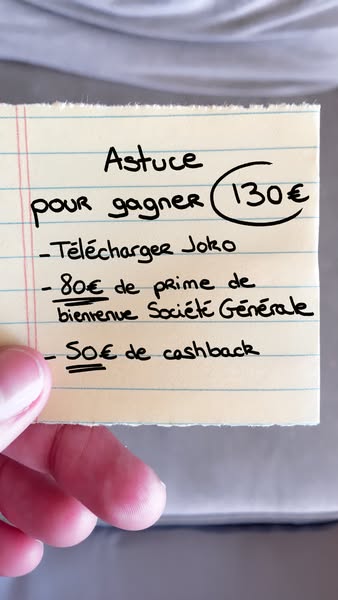 Astuce
pour gagner 130€
- Télécharger Joko
- 80€ de prime de
bienvenue Société Générale
- 50€ de cashback